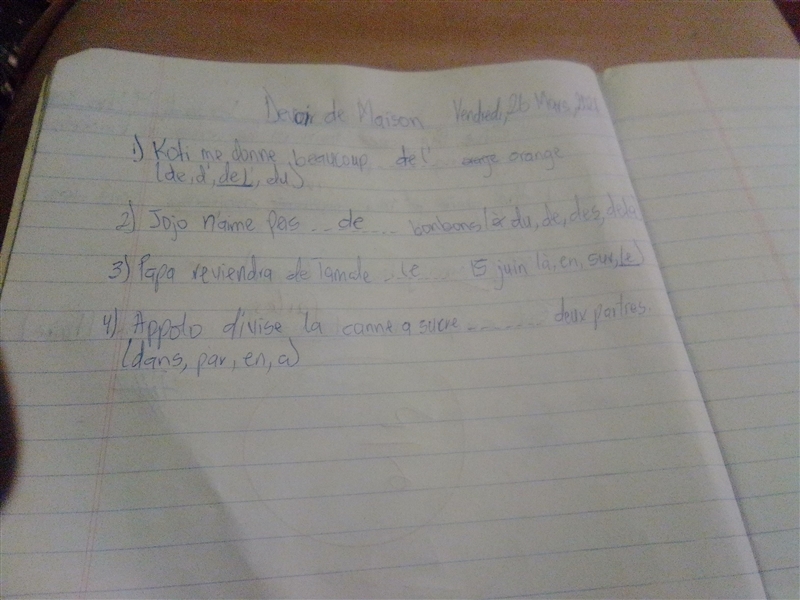 Devoir de Maison Vendredi, 26 Mars, 2021
1) Koti me donne beaucoup .. de l' orange
(de, d', de l', du)
2) Jojo n'aime pas .. de .... bonbons (à du, de, des, dela
3) Papa reviendra de Tamale .. le .... 5 juin (à, en, sur, le)
4) Appolo divise la canne a sucre ........ deux parties.
(dans, par, en, a)